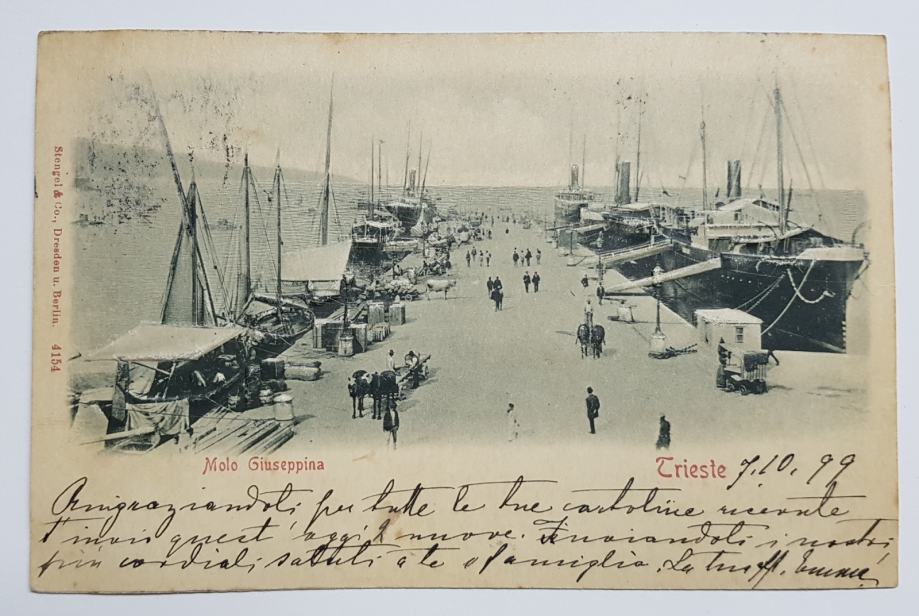 Stengel & Co., Dresden u. Berlin. 4154
Molo Giuseppina
Trieste 7.10.99
Ringraziandoti per tutte le tue cartoline ricevute
t'invio quest' oggi nuove. Inviandoti i nostri
più cordiali saluti a te e famiglia. La tua aff. Emma